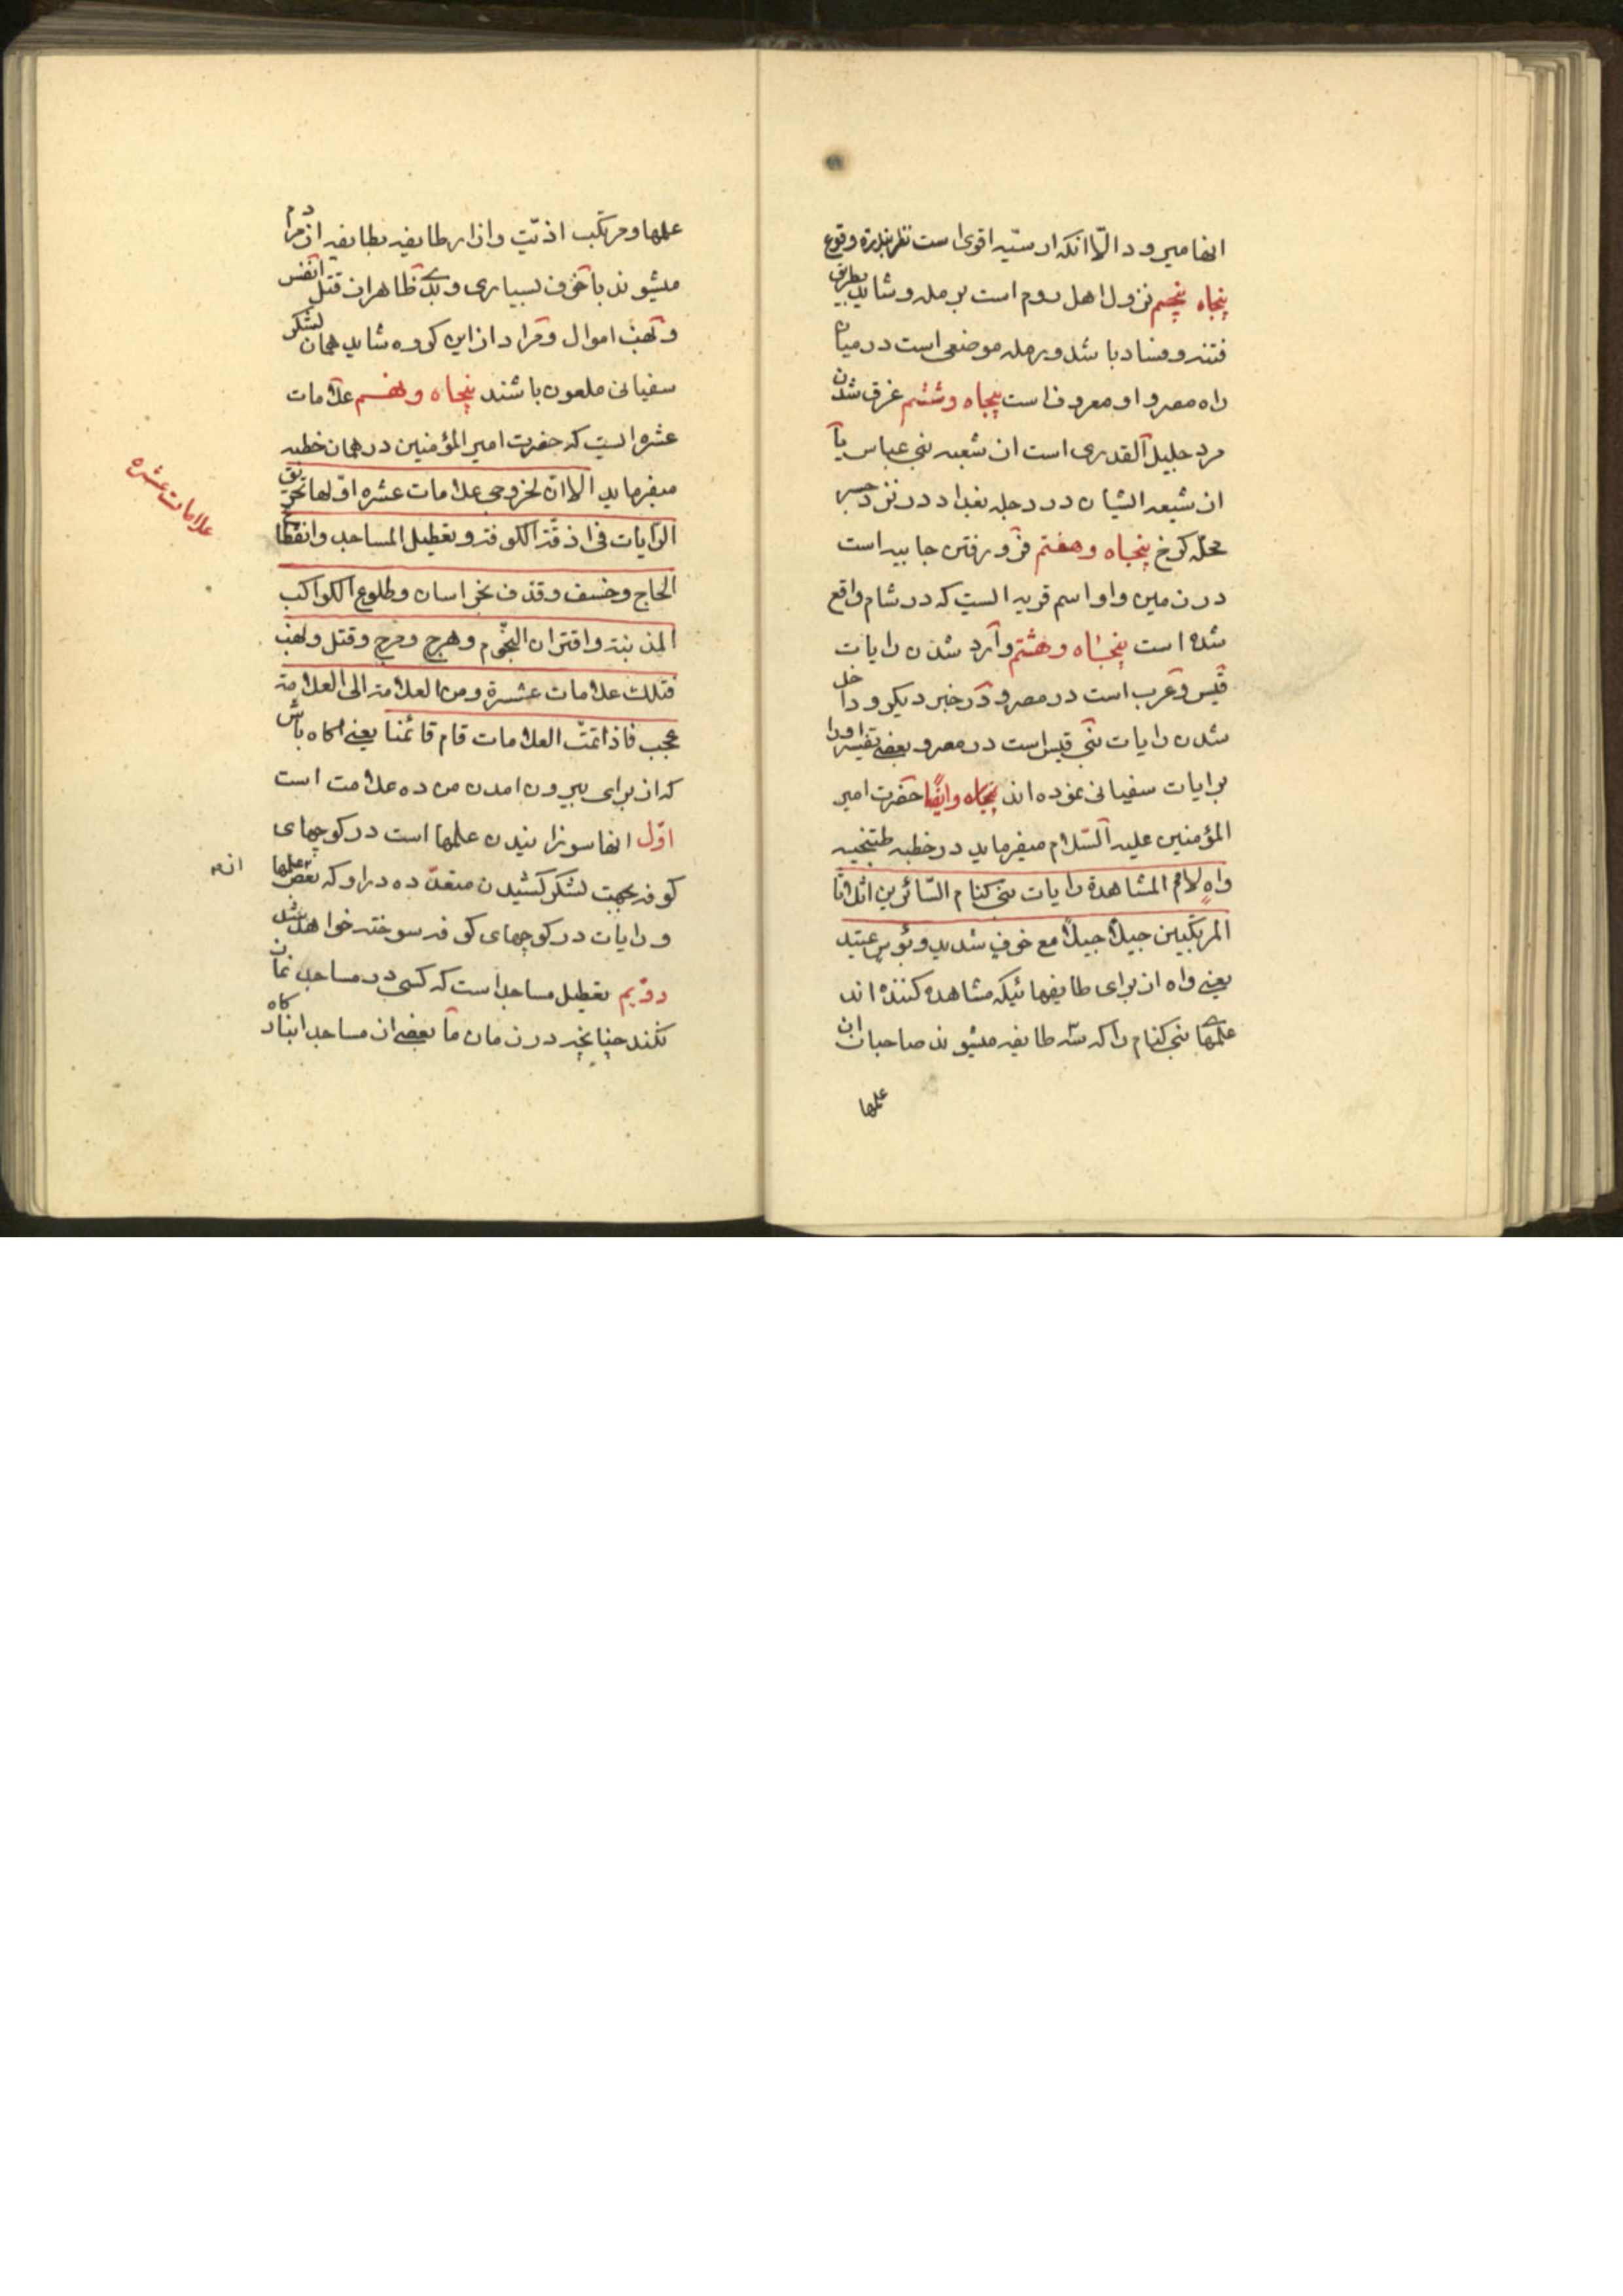 انها میرود الّا انکه از سنّیه اقوی است نظر بندرة وقوع
پنجاه پنجم نزول اهل روم است برمله و شاید بطریق
فتنه و فساد باشد و رمله موضعی است در میان
راه مصر و او معروف است پنجاه و ششم غرق شدن
مرد جلیل القدری است از شیعه بنی عباس یا
از شیعه ایشان در دجله بغداد در نزد جسر
محلّه کرخ پنجاه و هفتم فرو رفتن جابیه است
در زمین و او اسم قریه ایست که در شام واقع
شده است پنجاه و هشتم وارد شدن رایات
قیس و عرب است در مصر و در خبر دیگر و داخل
شدن رایات بنی قیس است در مصر و بعضی تفسیر او را
برایات سفیانی نموده اند پنجاه وایضًا حضرت امیر
المؤمنین علیه السّلام میفرماید در خطبه طتنجیه
واهٍ لامم المشاهدة رایات بنی کنام السّائرین اثلاثا
المرتکبین جبیلًا جبیلًا مع خوف شدید و بؤس عتید
یعنی واه از برای طایفهائیکه مشاهده کننده اند
علمهای بنی کنام را که سه طایفه میشوند صاحبان این
علمها
علمها و مرتکب اذیّت و ازار طایفه بطایفه از مردم
میشوند با خوف بسیاری و بدی ظاهر از قتل انفس
و نهب اموال و مراد از این گروه شاید همان لشکر
سفیانی ملعون باشند پنجاه و نهم علامات
عشره ایست که حضرت امیر المؤمنین در همان خطبه
میفرماید الا ان لخروجی علامات عشره اولها تخریق
الرّایات فی اذقّة الکوفة و تعطیل المساجد و انقطاع
الحاج و خسف و قذف بخراسان و طلوع الکواکب
المذنبة و اقتران النجوم و هرج و مرج و قتل و نهب
فتلک علامات عشرة و من العلامة الی العلامة
عجب فاذا تمّت العلامات قام قائمنا یعنی اکاه باش
که از برای بیرون امدن من ده علامت است
اوّل انها سوزانیدن علمها است در کوچهای
کوفه بجهت لشکر کشیدن متعدّده در او که بعض علمها
و رایات در کوچهای کوفه سوخته خواهد شد
دوّیم تعطیل مساجد است که کسی در مساجد نماز
نکند چنانچه در زمان ما بعضی از مساجد انبار کاه
علامات عشره